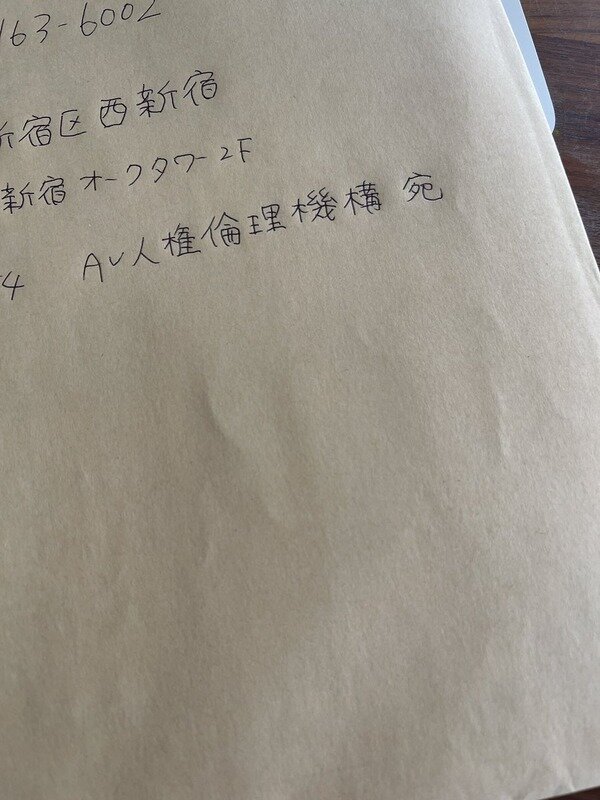 163-6002
新宿区西新宿
新宿オークタワー2F
54 AV人権倫理機構 宛